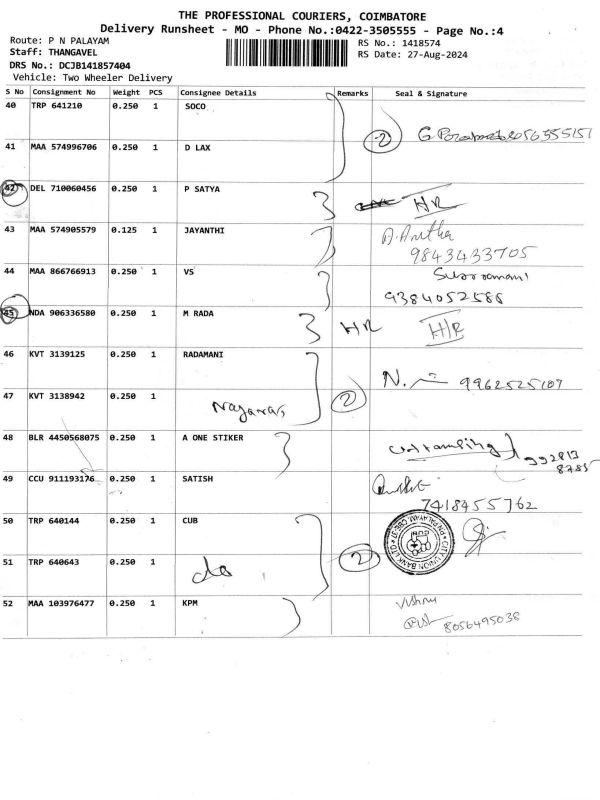 THE PROFESSIONAL COURIERS, COIMBATORE
Delivery Runsheet - MO - Phone No.:0422-3505555 - Page No.:4
Route: P N PALAYAM
RS No.: 1418574
Staff: THANGAVEL
RS Date: 27-Aug-2024
DRS No.: DCJB141857404
Vehicle: Two Wheeler Delivery
S No Consignment No Weight PCS Consignee Details Remarks Seal & Signature
40 TRP 641210 0.250 1 SOCO
2
41 MAA 574996706 0.250 1 D LAX
42 DEL 710060456 0.250 1 P SATYA
HR
43 MAA 574905579 0.125 1 JAYANTHI
A. Anitha
9843433705
44 MAA 866766913 0.250 1 VS
9384052586
45 NDA 906336580 0.250 1 M RADA HR HR
46 KVT 3139125 0.250 1 RADAMANI
N. 9962525109
47 KVT 3138942 0.250 1
2
48 BLR 4450568075 0.250 1 A ONE STIKER
49 CCU 911193176 0.250 1 SATISH
7418455762
50 TRP 640144 0.250 1 CUB
CITY UNION BANK LTD
51 TRP 640643 0.250 1 do 2
52 MAA 103976477 0.250 1 KPM
Vishnu
8056495038